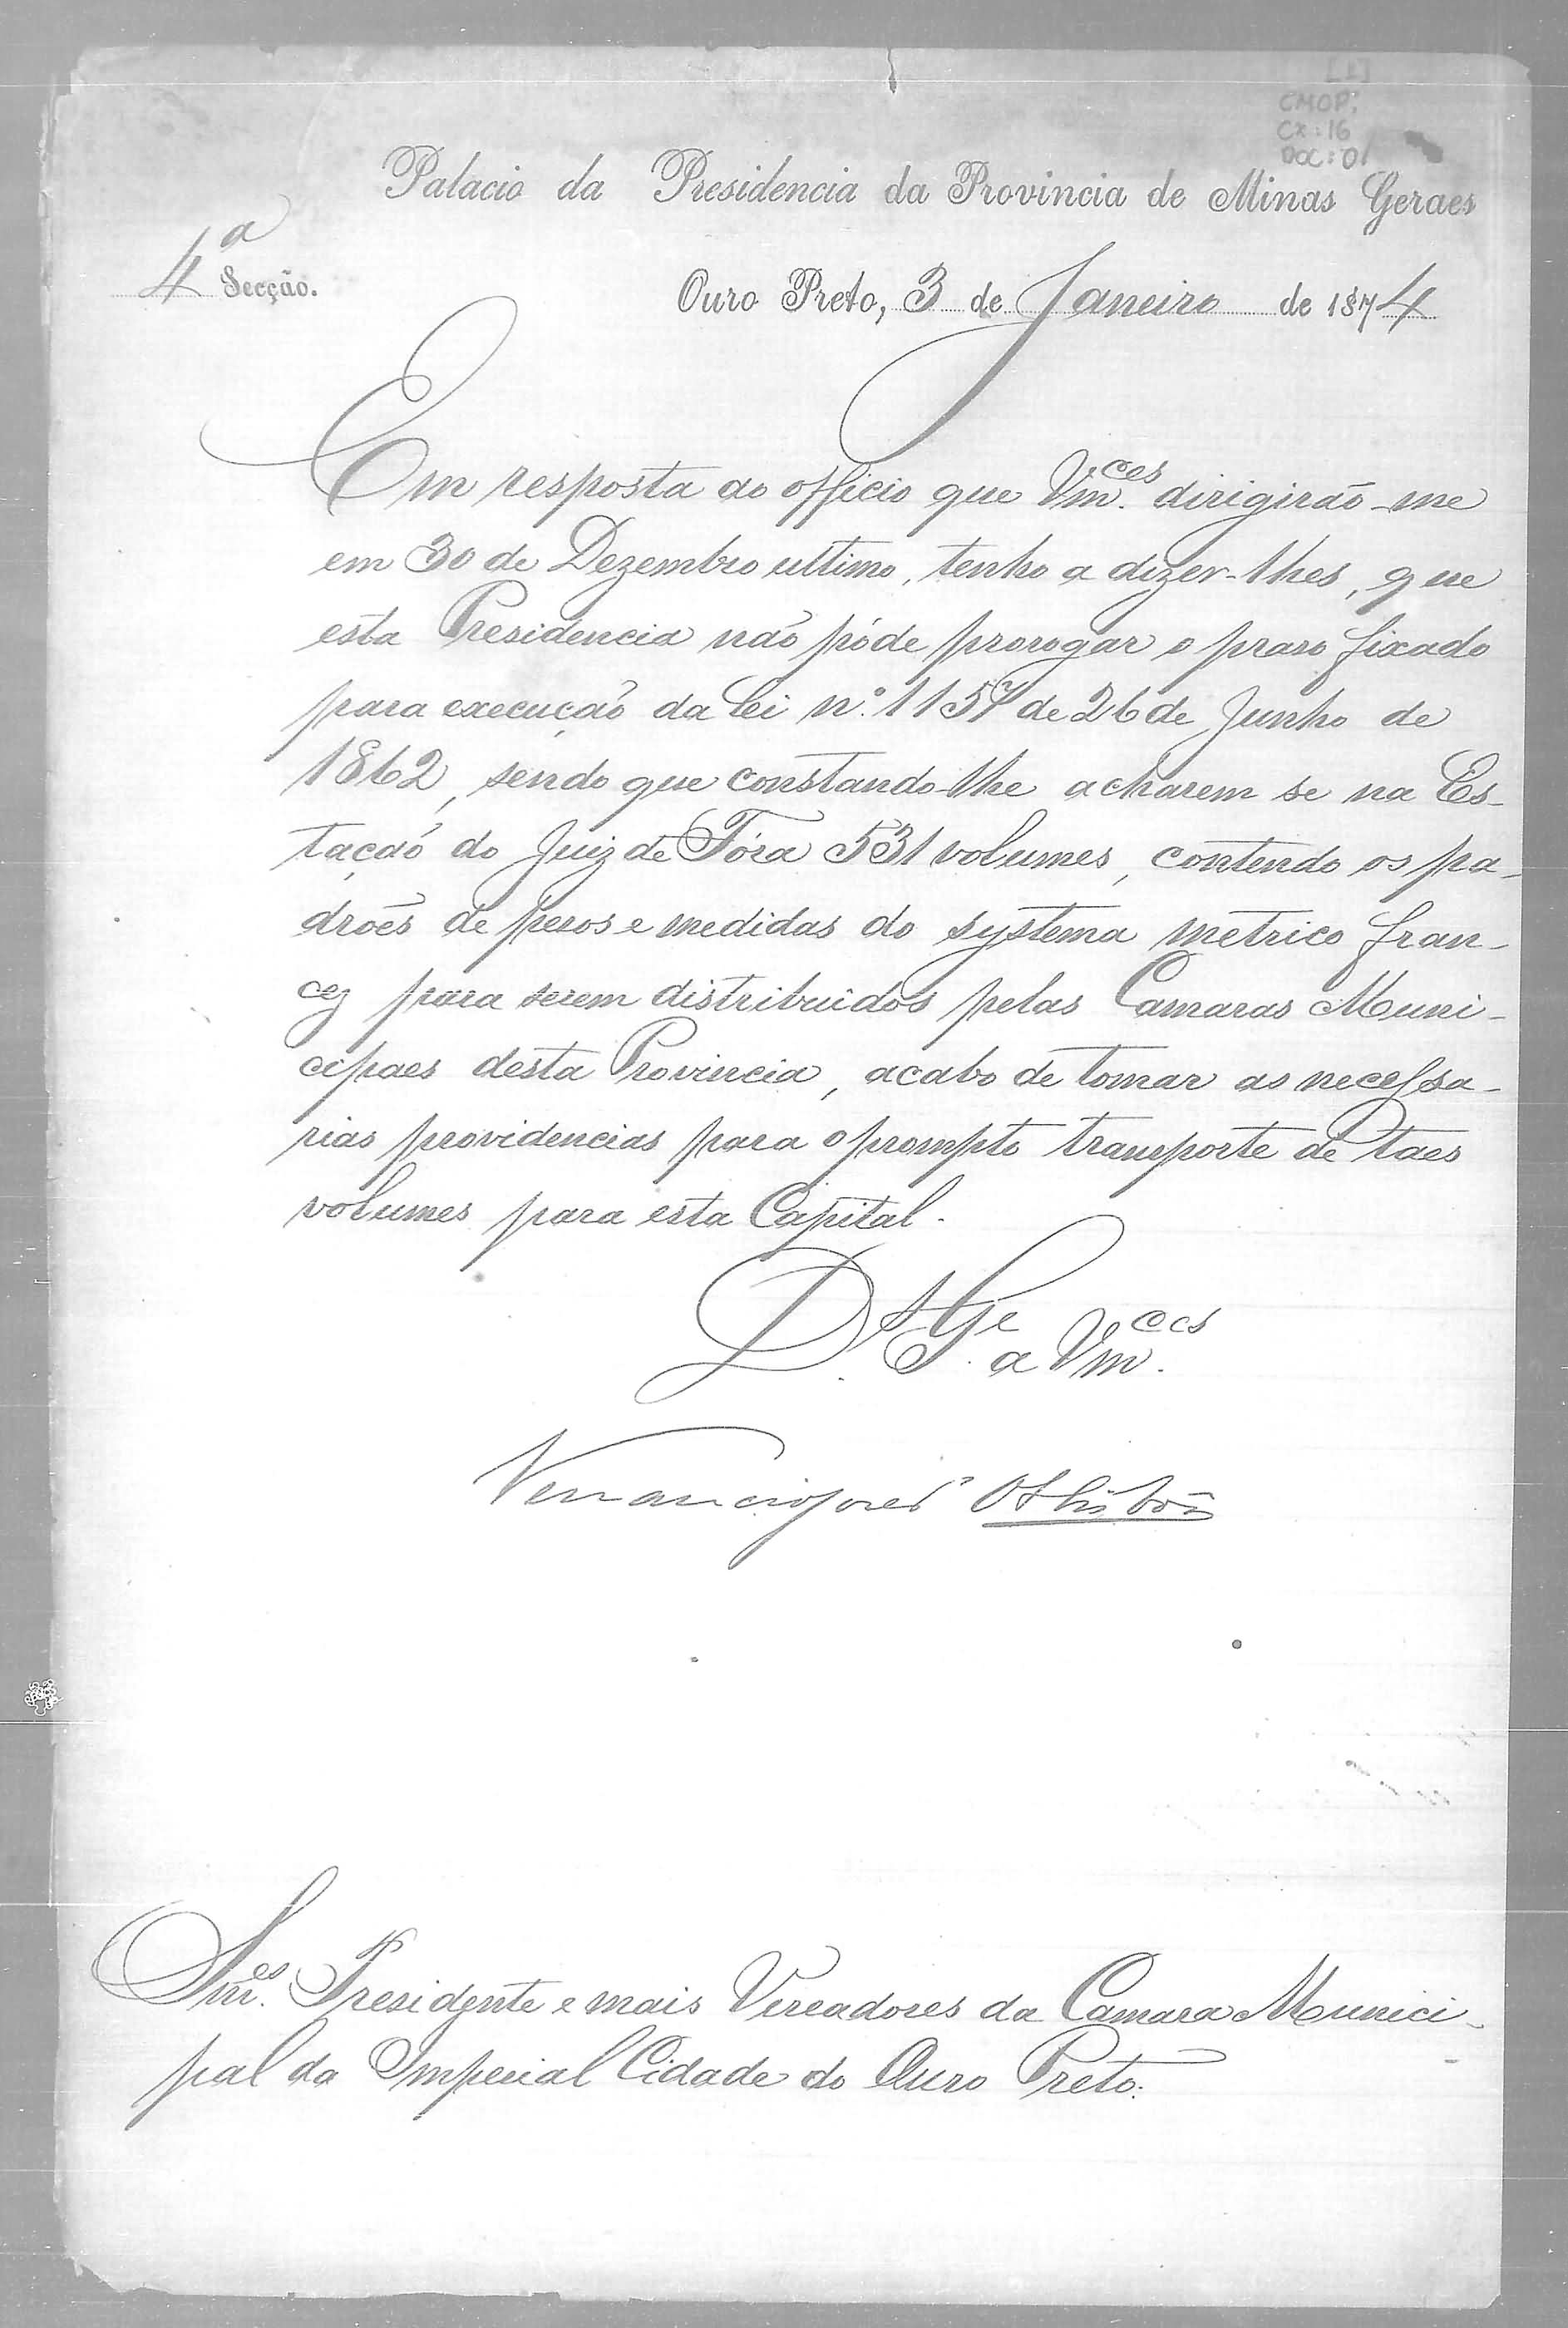 [1]
CMOP:
CX: 16
DOC: 01
Palacio da Presidencia da Provincia de Minas Geraes
4ª Secção.
Ouro Preto, 3 de Janeiro de 1874
Em resposta ao officio que Vm.ces dirigirão-me
em 30 de Dezembro ultimo, tenho a dizer-lhes, que
esta Presidencia não póde prorogar o praso fixado
para execução da lei n.º 1157 de 26 de Junho de
1862, sendo que constando-lhe acharem se na Es-
tação do Juiz de Fóra 531 volumes, contendo os pa-
drões de pesos e medidas do systema metrico fran-
cez para serem distribuidos pelas Camaras Muni-
cipaes desta Provincia, acabo de tomar as necessa-
rias providencias para o prompto transporte de taes
volumes para esta Capital.
D.s G.e a Vm.ces
Venancio José d'Ol.
Snr.es Presidente e mais Vereadores da Camara Munici-
pal da Imperial Cidade do Ouro Preto.